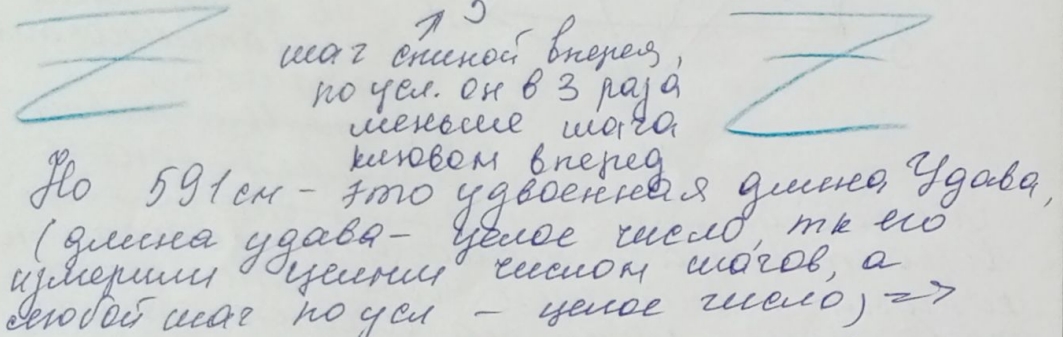 ↑ 3
шаг спиной вперед,
по усл. он в 3 раза
меньше шага
клювом вперед
Но 591см - это удвоенная длина Удава,
(длина удава - целое число, тк его
измерили целым числом шагов, а
любой шаг по усл - целое число) =>